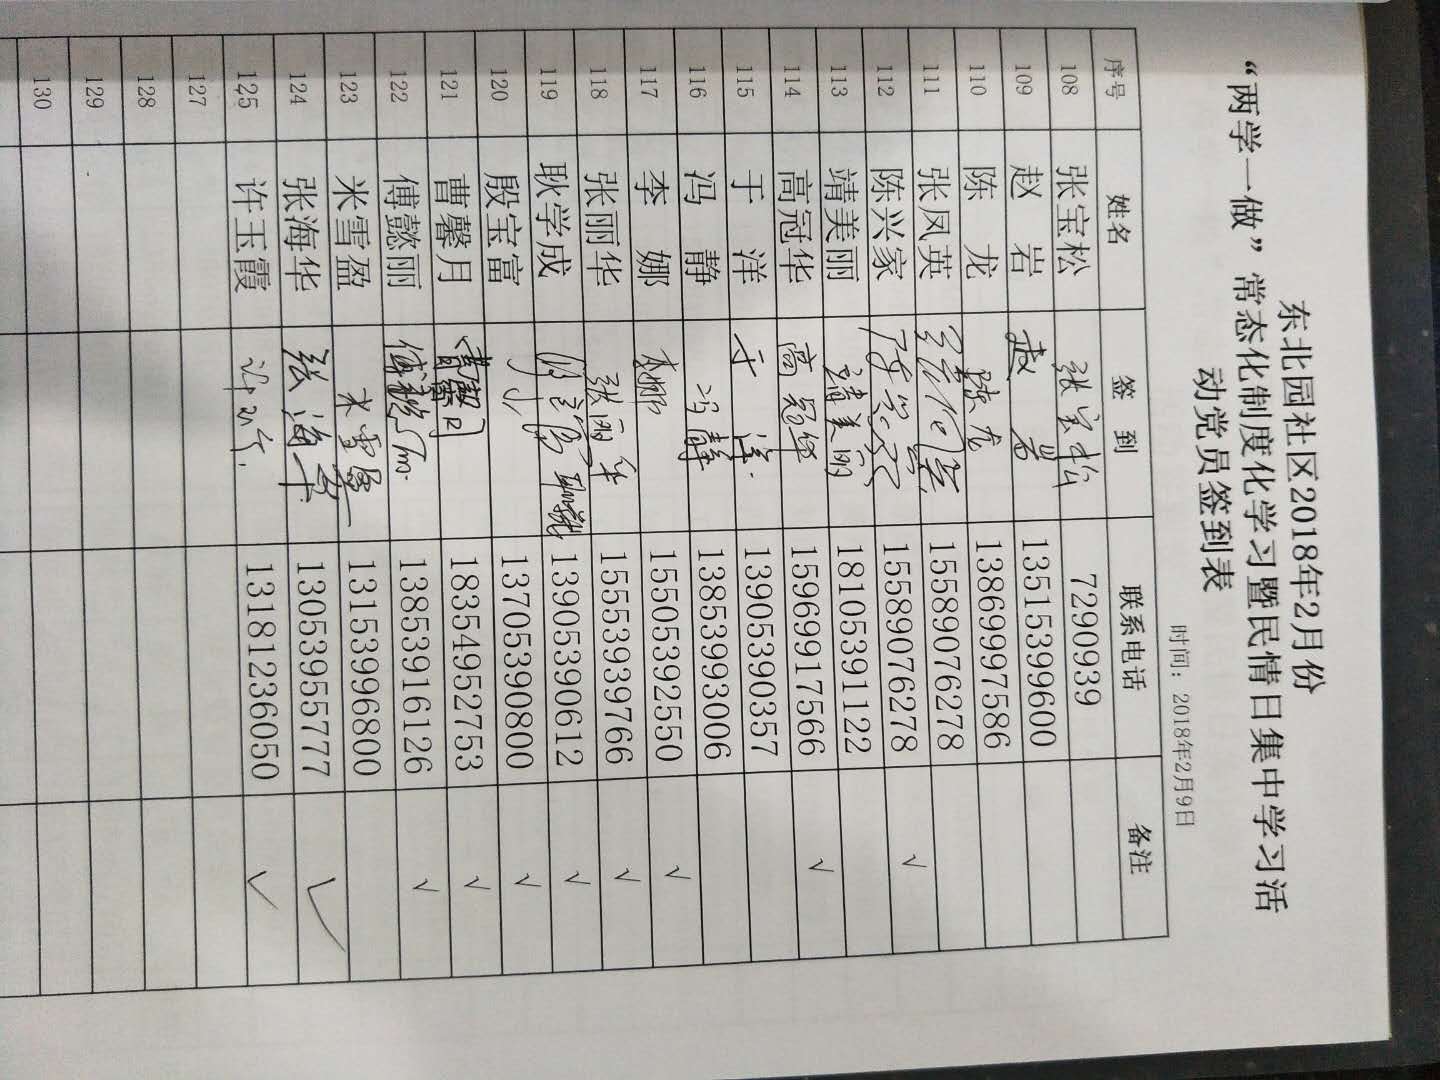 东北园社区2018年2月份
“两学一做”常态化制度化学习暨民情日集中学习活
动党员签到表
时间：2018年2月9日
序号 姓名 签到 联系电话 备注
108 张宝松 张宝松 7290939
109 赵岩 赵岩 13515399600
110 陈龙 陈龙 13869997586
111 张凤英 张凤英 15589076278
112 陈兴家 陈兴家 15589076278 √
113 靖美丽 靖美丽 18105391122
114 高冠华 高冠华 15969917566 √
115 于洋 于洋 13905390357
116 冯静 冯静 13853993006
117 李娜 李娜 15505392550 √
118 张丽华 张丽华 15553939766 √
119 耿学成 13905390612 √
120 殷宝富 13705390800 √
121 曹馨月 曹馨月 18354952753 √
122 傅懿丽 傅懿丽 13853916126 √
123 米雪盈 米雪盈 13153996800
124 张海华 张海华 13053955777 √
125 许玉霞 许玉霞 13181236050 √
127
128
129
130